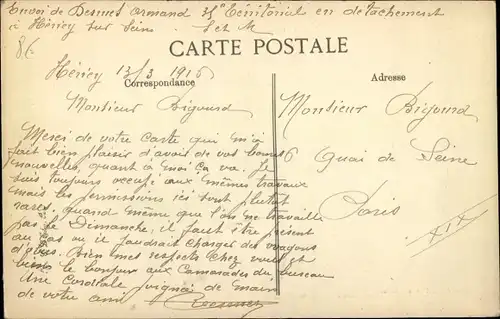 Envoi de Desmet Armand 34e Territorial en detachement
à Héricy sur Seine S et M
86
CARTE POSTALE
Héricy 13/3 1916
Correspondance
Adresse
Monsieur Bigourd
Merci de votre Carte qui m'a
fait bien plaisir d'avoir de vos bonnes
nouvelles, quant à moi ça va. Je
suis toujours occupé aux mêmes travaux
mais les permissions ici sont plutôt
rares, quand même que l'on ne travaille
pas le Dimanche, il faut être présent
au cas ou il faudrait charger des wagons
bien mes respects chez vous et
le bonjour aux Camarades du bureau
Une Cordiale poignée de main
de votre ami
Monsieur Bigourd
6 Quai de Seine
Paris
XIX